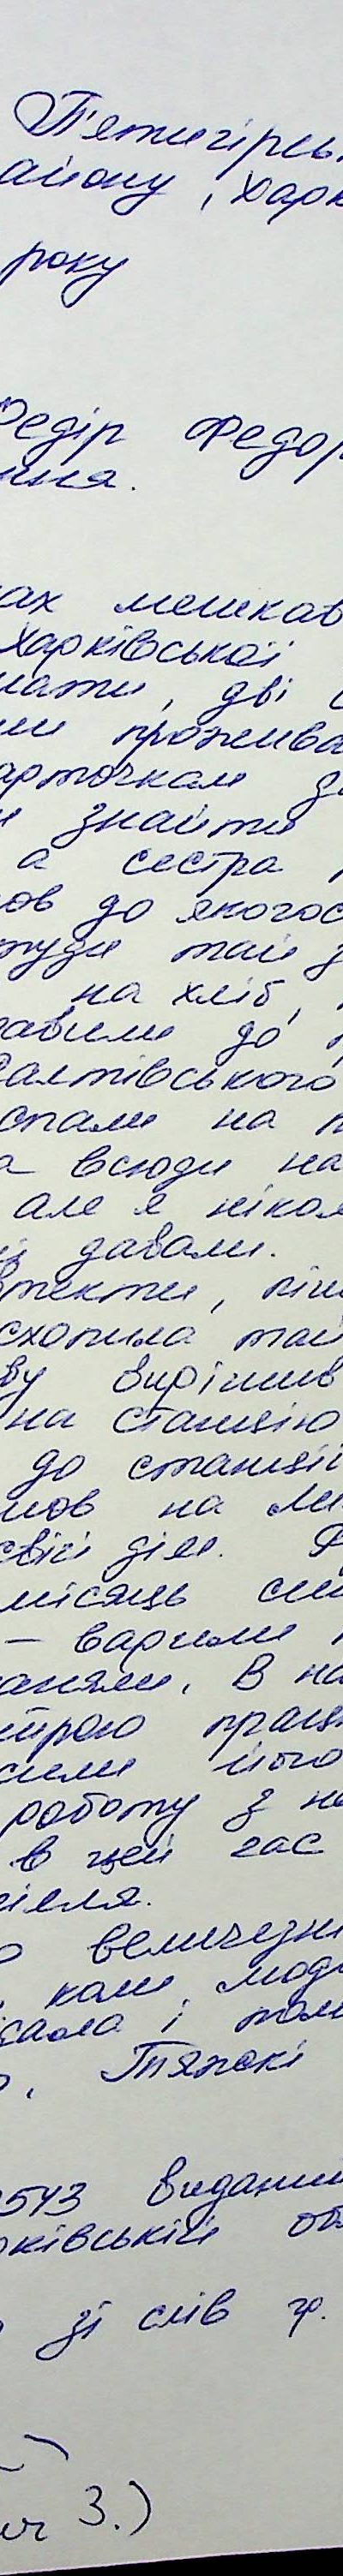 П'ятигірсь
айону, Харк
року
Федір Федор
ння.
ах мешкав
Харківської
мати, дві с
ми прожива
арточкам з
и знайти
а сестра
ов до якогос
туди там з
на хліб,
авили до
Салтівського
спали на п
а всюди на
але я ніком
і давали.
втекти, піш
схопила там
ву вирішив
на станцію
до станції
шов на ли
свої діли. Ф
місяць си
– варили
аняли. В на
трою праць
сили його
роботу з н
в цей час
ілля.
о величезн
коли мод
дала і том
о, Тяжкі
2543 виданий
рківській об
зі слів гр.
ич З.)